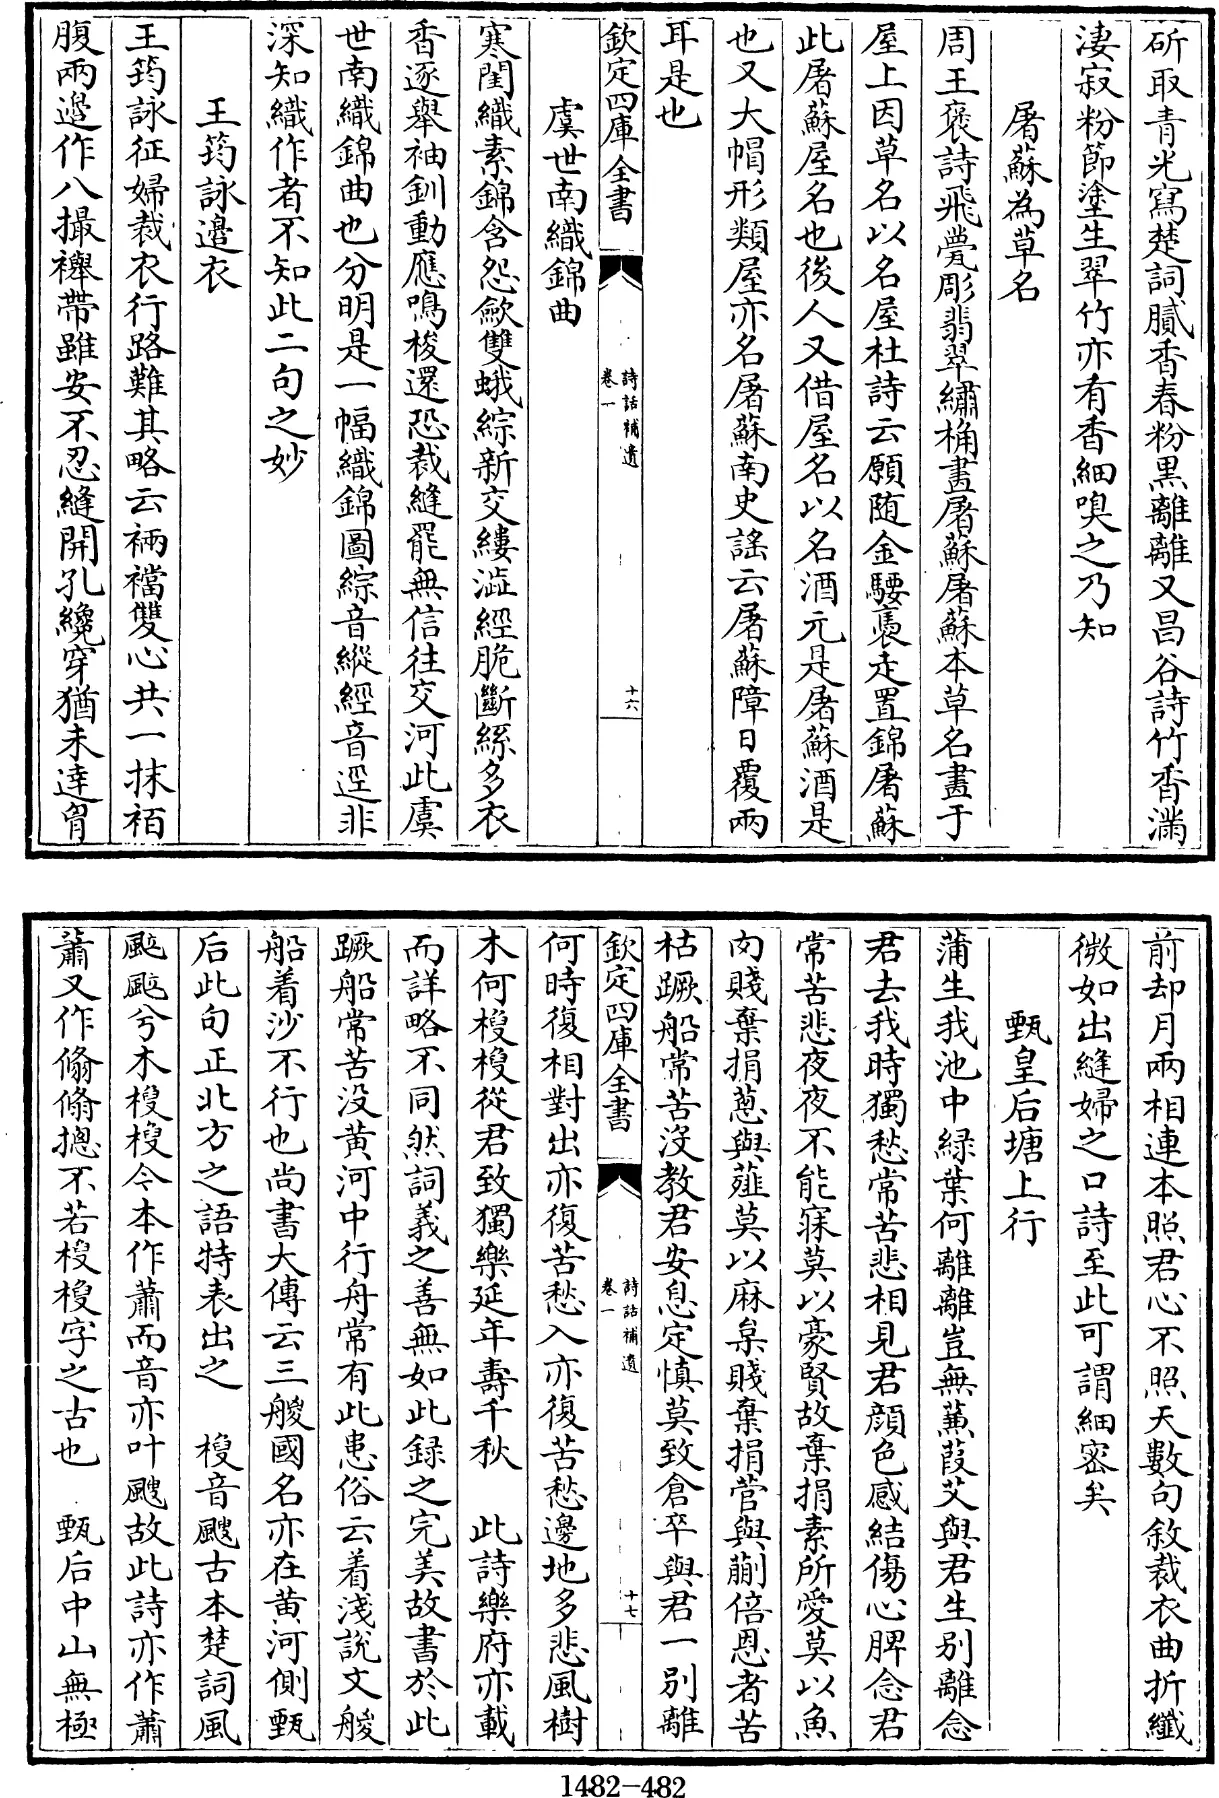 斫取青光寫楚詞膩香春粉黒離離又昌谷詩竹香滿
淒寂粉節塗生翠竹亦有香細嗅之乃知
屠蘇為草名
周王褒詩飛甍彫翡翠繡桷畫屠蘇屠蘇本草名畫于
屋上因草名以名屋杜詩云願随金騕褭走置錦屠蘇
此屠蘇屋名也後人又借屋名以名酒元是屠蘇酒是
也又大帽形類屋亦名屠蘇南史謡云屠蘇障日覆兩
耳是也
欽定四庫全書
詩話補遺
卷一
十六
虞世南織錦曲
寒閨織素錦含怨歛雙蛾綜新交縷澁經脆斷絲多衣
香逐舉袖釧動應鳴梭還恐裁縫罷無信往交河此虞
世南織錦曲也分明是一幅織錦圖綜音縱經音逕非
深知織作者不知此二句之妙
王筠詠邉衣
王筠詠征婦裁衣行路難其略云裲襠雙心共一抹袹
腹兩邉作八撮襻帶雖安不忍縫開孔纔穿猶未達胷
前却月兩相連本照君心不照天數句敘裁衣曲折纎
微如出縫婦之口詩至此可謂細密矣
甄皇后塘上行
蒲生我池中緑葉何離離豈無蒹葭艾與君生别離念
君去我時獨愁常苦悲相見君顔色感結傷心脾念君
常苦悲夜夜不能寐莫以豪賢故棄捐素所愛莫以魚
肉賤棄捐葱與薤莫以麻枲賤棄捐菅與蒯倍恩者苦
枯蹶船常苦沒教君安息定慎莫致倉卒與君一别離
欽定四庫全書
詩話補遺
卷一
十七
何時復相對出亦復苦愁入亦復苦愁邊地多悲風樹
木何梭梭從君致獨樂延年壽千秋　此詩樂府亦載
而詳略不同然詞義之善無如此録之完美故書於此
蹶船常苦没黄河中行舟常有此患俗云着淺說文艐
船着沙不行也尚書大傳云三艐國名亦在黄河側甄
后此句正北方之語特表出之　梭音颼古本楚詞風
颭颭兮木梭梭今本作蕭而音亦叶颼故此詩亦作蕭
蕭又作翛翛揔不若梭梭字之古也　甄后中山無極
1482-482